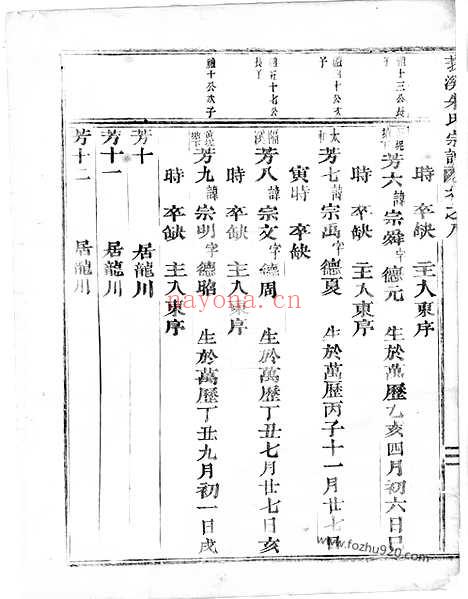 宗譜
時 卒缺 主入東序
芳六諱宗舜字德元 生於萬歷乙亥四月初六日巳
時 卒缺 主入東序
芳七諱宗禹字德夏 生於萬歷丙子十一月廿七日
寅時 卒缺
芳八諱宗文字德周 生於萬歷丁丑七月廿七日亥
時 卒缺 主入東序
芳九諱宗明字德昭 生於萬歷丁丑九月初一日戌
時 卒缺 主入東序
芳十 居龍川
芳十一 居龍川
芳十二 居龍川
nayona.cn
www.fozhu920.com